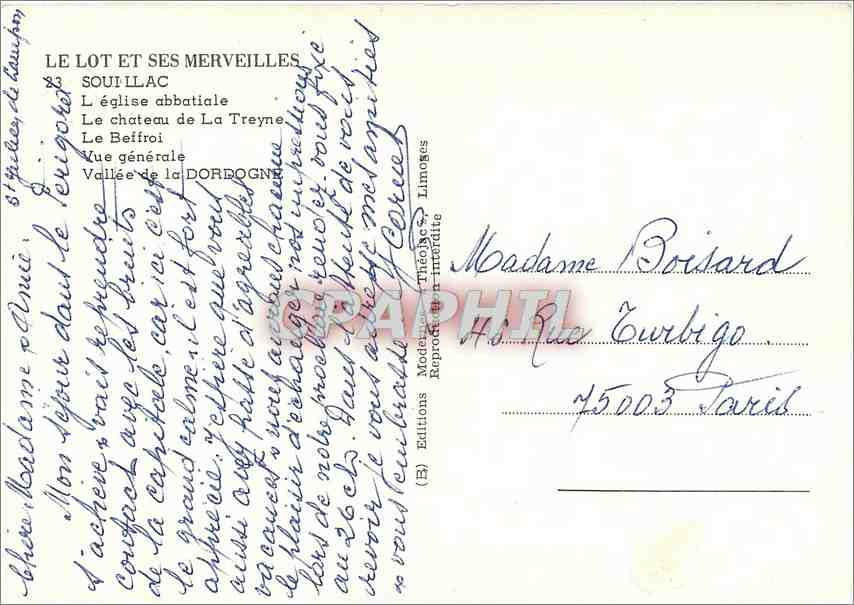 LE LOT ET SES MERVEILLES
23 SOUILLAC
L église abbatiale
Le chateau de La Treyne
Le Beffroi
Vue générale
Vallée de la DORDOGNE
St Julien de Lampon
Chère Madame & Amie.
Mon séjour dans le Périgord
s'achève & vais reprendre
contact avec les bruits
de la capitale, car ici c'est
le grand calme, il est fort
apprécié. J'espère que vous
aussi avez passé d'agréables
vacances & nous aurons chacune
le plaisir d'échanger nos impressions
lors de notre prochain rendez-vous fixé
au 26 ct. Dans l'attente de vous
revoir je vous adresse mes amitiés
& vous embrasse
(B) Editions Modernes "Théojac", Limoges
Reproduction interdite
CPAPHIL
Madame Boisard
48 Rue Turbigo.
75003 Paris